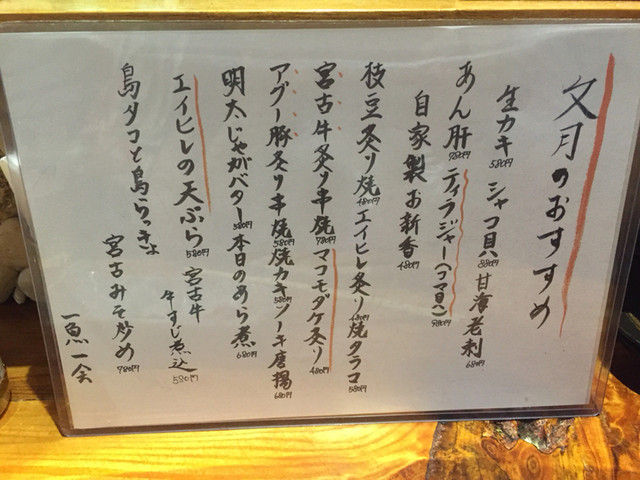 文月のおすすめ
生カキ 580円 シャコ貝 880円 甘海老刺 680円
あん肝 780円 ティラジャー(コマ貝) 580円
自家製お新香 480円
枝豆炙り焼 480円 エイヒレ炙り焼 480円 タラコ 580円
宮古牛炙り串焼 780円 マコモダケ炙り 480円
アグー豚炙り串焼 580円 焼カキ 580円 ソーキ唐揚 680円
明太じゃがバター 580円 本日のあら煮 680円
エイヒレの天ぷら 580円 宮古牛牛すじ煮込 580円
島タコと島らっきょ
宮古みそ炒め 780円
一魚一会